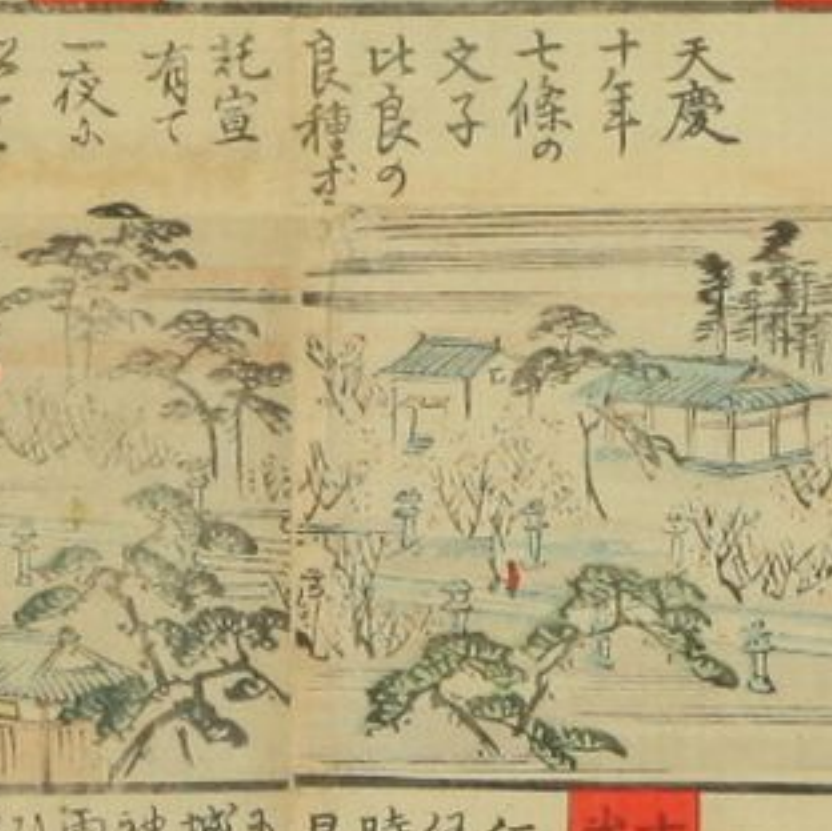 天慶
十年
七條の
文子
比良の
良種が
託宣
有て
一夜に